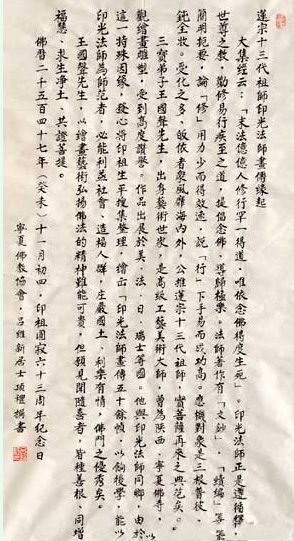 蓮宗十三代祖師印光法師畫傳緣起
大集經云：「末法億億人修行罕一得道，唯依念佛得度生死」。印光法師正是遵循釋
世尊之教，勸修易行疾至之道，提倡念佛，導歸極樂。法師著作有「文鈔」、「續編」等是
簡明扼要，論「修」用力少而得效速，説「行」下手易而成功高。應機對象是三根普被，
鈍全收。受化之多，皈依者衆風靡海内外，公推蓮宗十三代祖師，實菩薩再來之典范矣。
三寶弟子王國聲先生，出身藝術世家，是高級工藝美術大師，曾為陝西、寧夏佛寺，
觀繪畫雕塑，受到高度讚譽。作品出展於美、法、日、瑞士等國。他與印光法師同鄉，由於
這一特殊因緣，發心將印祖生平搜集整理，繪出「印光法師畫傳五十餘幀，以餉後學，能以
印光法師為師范者，必能利益社會、造福人群，庄嚴國土、利樂有情，佛門之優秀矣。
王國聲先生，以繪畫藝術弘揚佛法的精神難能可貴，但願見聞隨喜者，皆種善根、同增
福慧、求生净土、共證菩提。
佛曆二千五百四十七年（癸未）十一月初四，印祖圓寂六十三周年紀念日
寧夏佛教協會，吕維新居士頂禮撰書